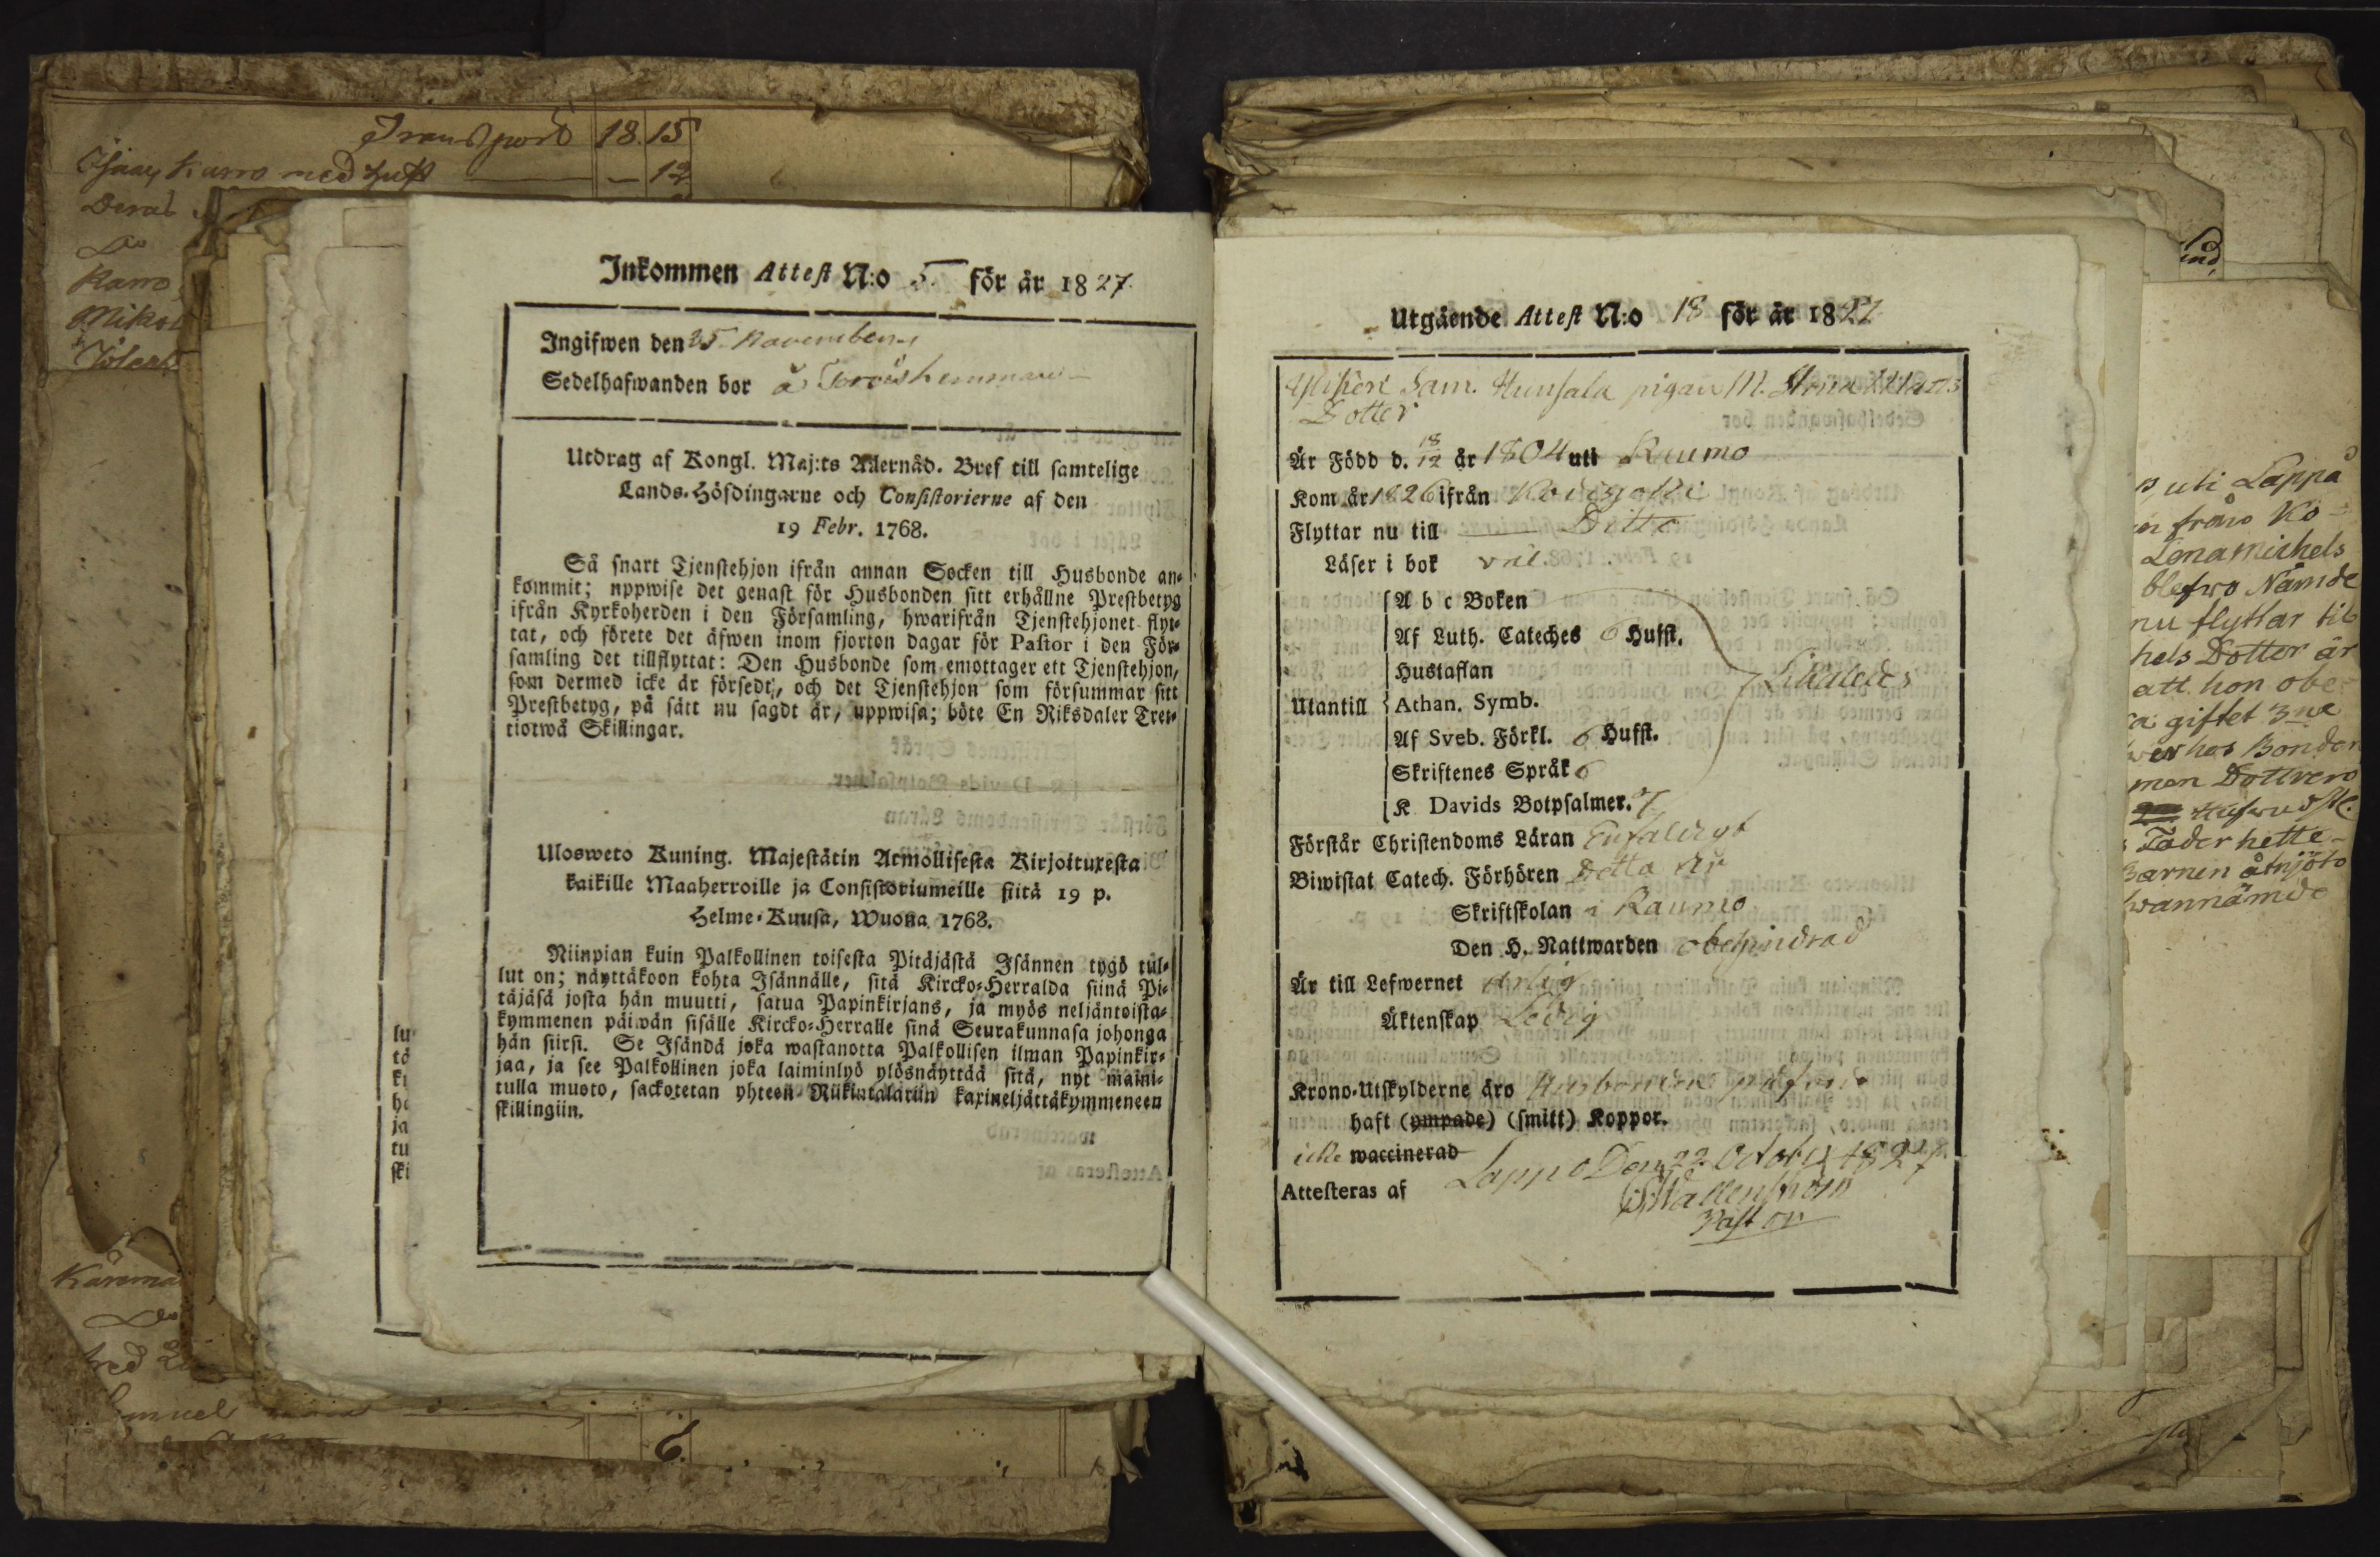 Transport 18. 15
Karro med hust — 12
Karro
Inkommen Attest N:o 5. för år 1827.
Ingifwen den 25. November
Sedelhafwanden bor å
Utdrag af Kongl. Maj:ts Allernåd. Bref till samtelige
Lands-Höfdingarne och Consistorierne af den
19 Febr. 1768.
Så snart Tjenstehjon ifrån annan Socken till Husbonde an-
kommit; uppwise det genast för Husbonden sitt erhållne Prestbetyg
ifrån Kyrkoherden i den Församling, hwarifrån Tjenstehjonet flyt-
tat, och förete det äfwen inom fjorton dagar för Pastor i den För-
samling det tillflyttat: Den Husbonde som emottager ett Tjenstehjon,
som dermed icke är försedt, och det Tjenstehjon som försummar sitt
Prestbetyg, på sätt nu sagdt är, uppwisa; böte En Riksdaler Tret-
tiotwå Skillingar.
Ulosweto Kuning. Majestätin Armollisesta Kirjoituxesta
kaikille Maaherroille ja Consistoriumeille siitä 19 p.
Helme-Kuusa, Wuona 1768.
Niinpian kuin Palkollinen toisesta Pitäjästä Isännen tygö tul-
lut on; näyttäkoon kohta Isännälle, sitä Kircko-Herralda siinä Pi-
täjäsä josta hän muutti, satua Papinkirjans, ja myös neljäntoista-
kymmenen päiwän sisälle Kircko-Herralle sinä Seurakunnasa johonga
hän siirsi. Se Isändä joka wastanotta Palkollisen ilman Papinkir-
jaa, ja see Palkollinen joka laiminlyö ylösnäyttää sitä, nyt maini-
tulla muoto, sackotetan yhteen Riikintalariin kaxineljättäkymmeneen
skillingiin.
Utgående Attest N:o 18 för år 1827
Sam. Hunsala pigan M. Anna Matts
Dotter
Är Född d. 18/12 år 1804 uti Raumo
Kom år 1826 ifrån
Flyttar nu till Ditto
Läser i bok väl.
A b c Boken
Af Luth. Cateches 6 Hufst.
Hustaflan
Likaledes
Utantill Athan. Symb.
Af Sveb. Förkl. 6 Hufst.
Skriftenes Språk 6
K. Davids Botpsalmer. 7
Förstår Christendoms Läran Enfaldigt
Biwistat Catech. Förhören Detta år
Skriftskolan i Raumo
Den H. Nattwarden obehindrad
Är till Lefwernet ärlig
Äktenskap Ledig
Krono-Utskylderne äro Husbonden påförde
haft (ympade) (smitt) Koppor.
icke waccinerad
Lappo Den 22 October 1827
Attesteras af Wallenström
Pastor
uti Lappå
ifrån Ko-
Lena Michels
blefwo Nämde
nu flyttar til
hels Dotter är
att hon obe
giftet 3ne
hos Bonden
man Dottren
Fader hette
Barnen åtnjöto
wannämde
6.